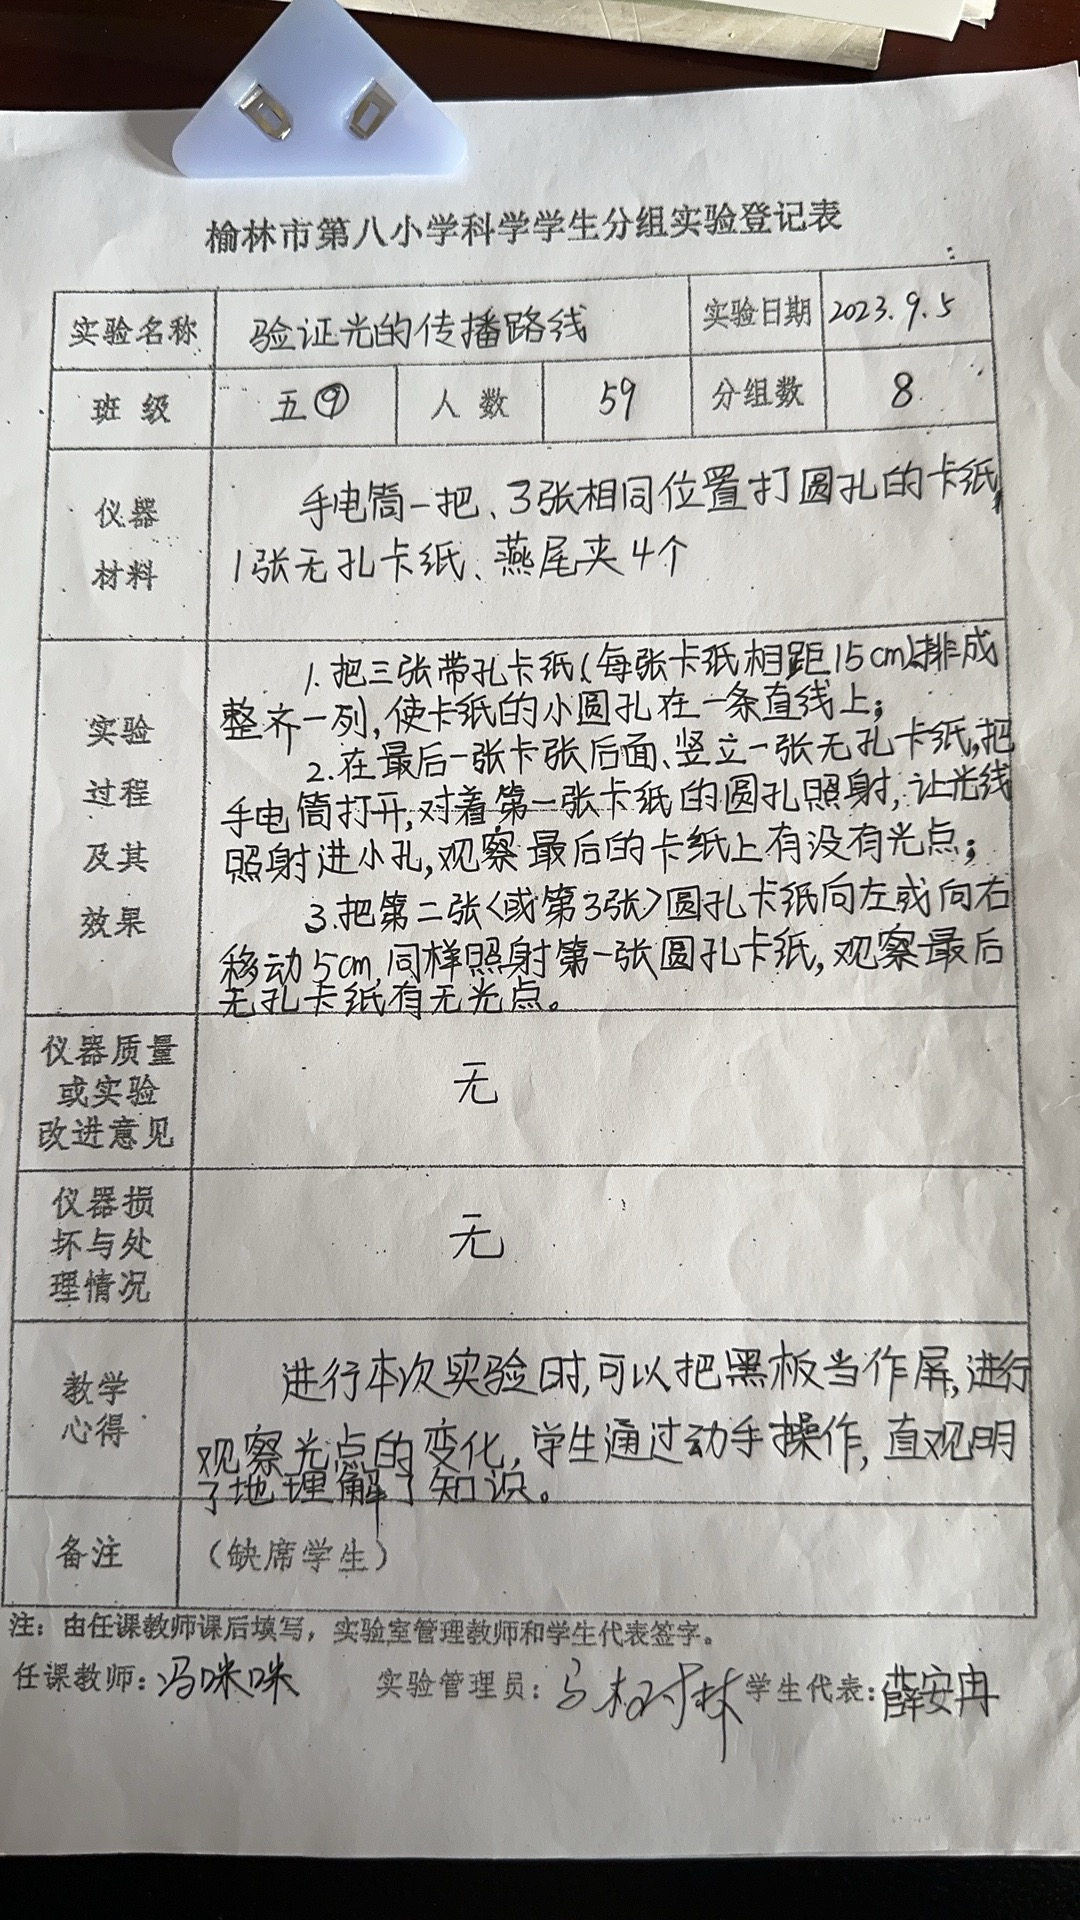 榆林市第八小学科学学生分组实验登记表
实验名称 验证光的传播路线 实验日期 2023.9.5
班级 五⑨ 人数 59 分组数 8
仪器
材料
手电筒一把、3张相同位置打圆孔的卡纸,
1张无孔卡纸、燕尾夹4个
实验
过程
及其
效果
1.把三张带孔卡纸(每张卡纸相距15cm)排成
整齐一列,使卡纸的小圆孔在一条直线上;
2.在最后一张卡张后面、竖立一张无孔卡纸,把
手电筒打开,对着第一张卡纸的圆孔照射,让光线
照射进小孔,观察最后的卡纸上有没有光点;
3.把第二张<或第3张>圆孔卡纸向左或向右
移动5cm,同样照射第一张圆孔卡纸,观察最后
无孔卡纸有无光点。
仪器质量
或实验
改进意见
无
仪器损
坏与处
理情况
无
教学
心得
进行本次实验时,可以把黑板当作屏,进行
观察光点的变化,学生通过动手操作,直观明
了地理解了知识。
备注 (缺席学生)
注:由任课教师课后填写,实验室管理教师和学生代表签字。
任课教师:冯咪咪 实验管理员: 学生代表:薛安冉